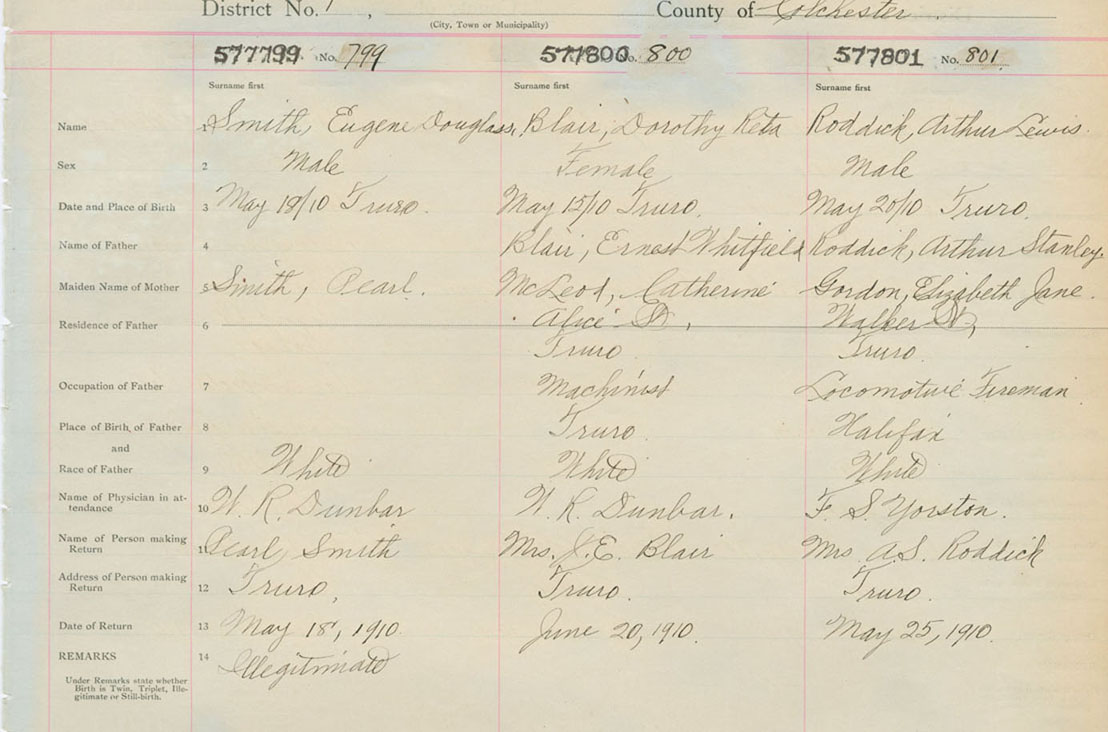 District No. 1, County of Colchester
(City, Town or Municipality)
577799 No. 799 577800 No. 800 577801 No. 801
Surname first Surname first Surname first
Name 1 Smith, Eugene Douglass, Blair, Dorothy Reta Roddick, Arthur Lewis.
Sex 2 Male Female Male
Date and Place of Birth 3 May 18/10 Truro. May 15/10 Truro. May 20/10 Truro.
Name of Father 4 Blair, Ernest Whitfield Roddick, Arthur Stanley.
Maiden Name of Mother 5 Smith, Pearl. McLeod, Catherine Gordon, Elizabeth Jane.
Residence of Father 6 Alice St, Walker St,
Truro Truro.
Occupation of Father 7 Machinist Locomotive Fireman
Place of Birth of Father 8 Truro. Halifax
and
Race of Father 9 White White White
Name of Physician in at-
tendance 10 W. R. Dunbar W. R. Dunbar. F. S. Yorston.
Name of Person making
Return 11 Pearl Smith Mrs. E. Blair Mrs A.S. Roddick
Address of Person making
Return 12 Truro, Truro. Truro.
Date of Return 13 May 18, 1910. June 20, 1910. May 25, 1910.
REMARKS 14 Illegitimate
Under Remarks state whether
Birth is Twin, Triplet, Ille-
gitimate or Still-birth.